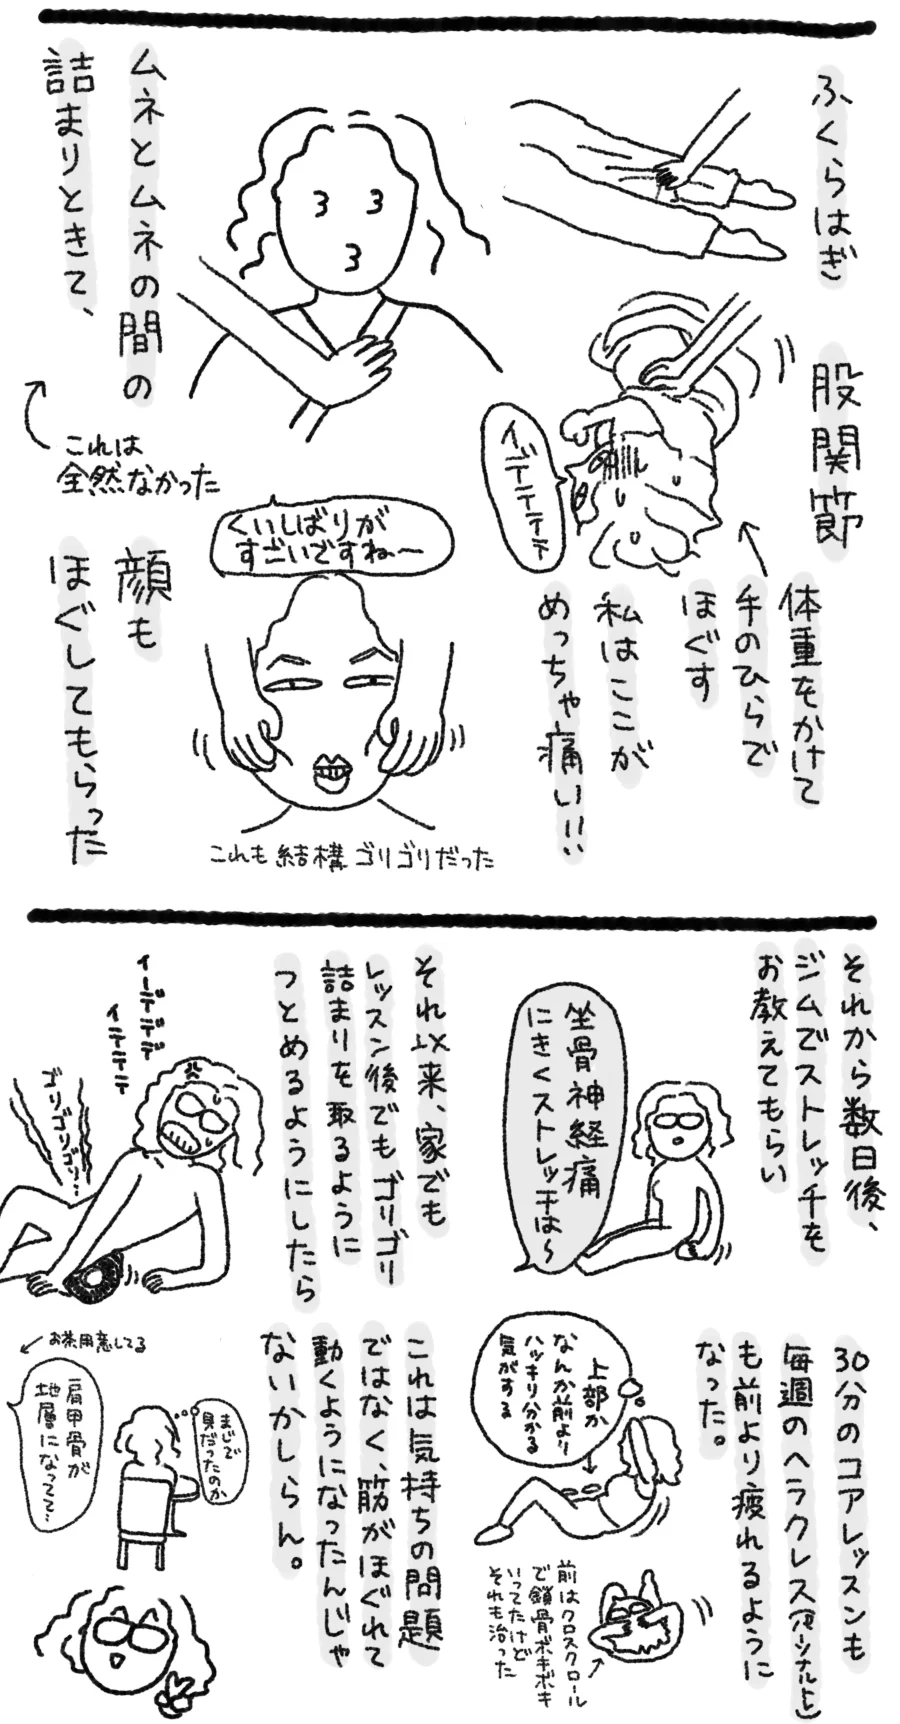 ふくらはぎ
股関節
イデテテテテ
体重をかけて
手のひらで
ほぐす
私はここが
めっちゃ痛い!!
ムネとムネの間の
詰まりときて、
これは
全然なかった
くいしばりが
すごいですね〜
顔も
ほぐしてもらった
これも結構ゴリゴリだった
それから数日後、
ジムでストレッチを
お教えてもらい
坐骨神経痛
にきくストレッチは〜
30分のコアレッスンも
毎週のヘラクレス(パーソナルと)
も前より疲れるように
なった。
上部か
なんか前より
ハッキリ分かる
気がする
前はクロスクロール
で鎖骨ボキボキ
いってたけど
それも治った
それ以来、家でも
レッスン後でもゴリゴリ
詰まりを取るように
つとめるようにしたら
イーデデデ
イテテテ
ゴリゴリゴリ…
これは気持ちの問題
ではなく、筋がほぐれて
動くようになったんじゃ
ないかしらん。
お茶用意してる
まじで
貝だったのか
肩甲骨が
地層になってて…